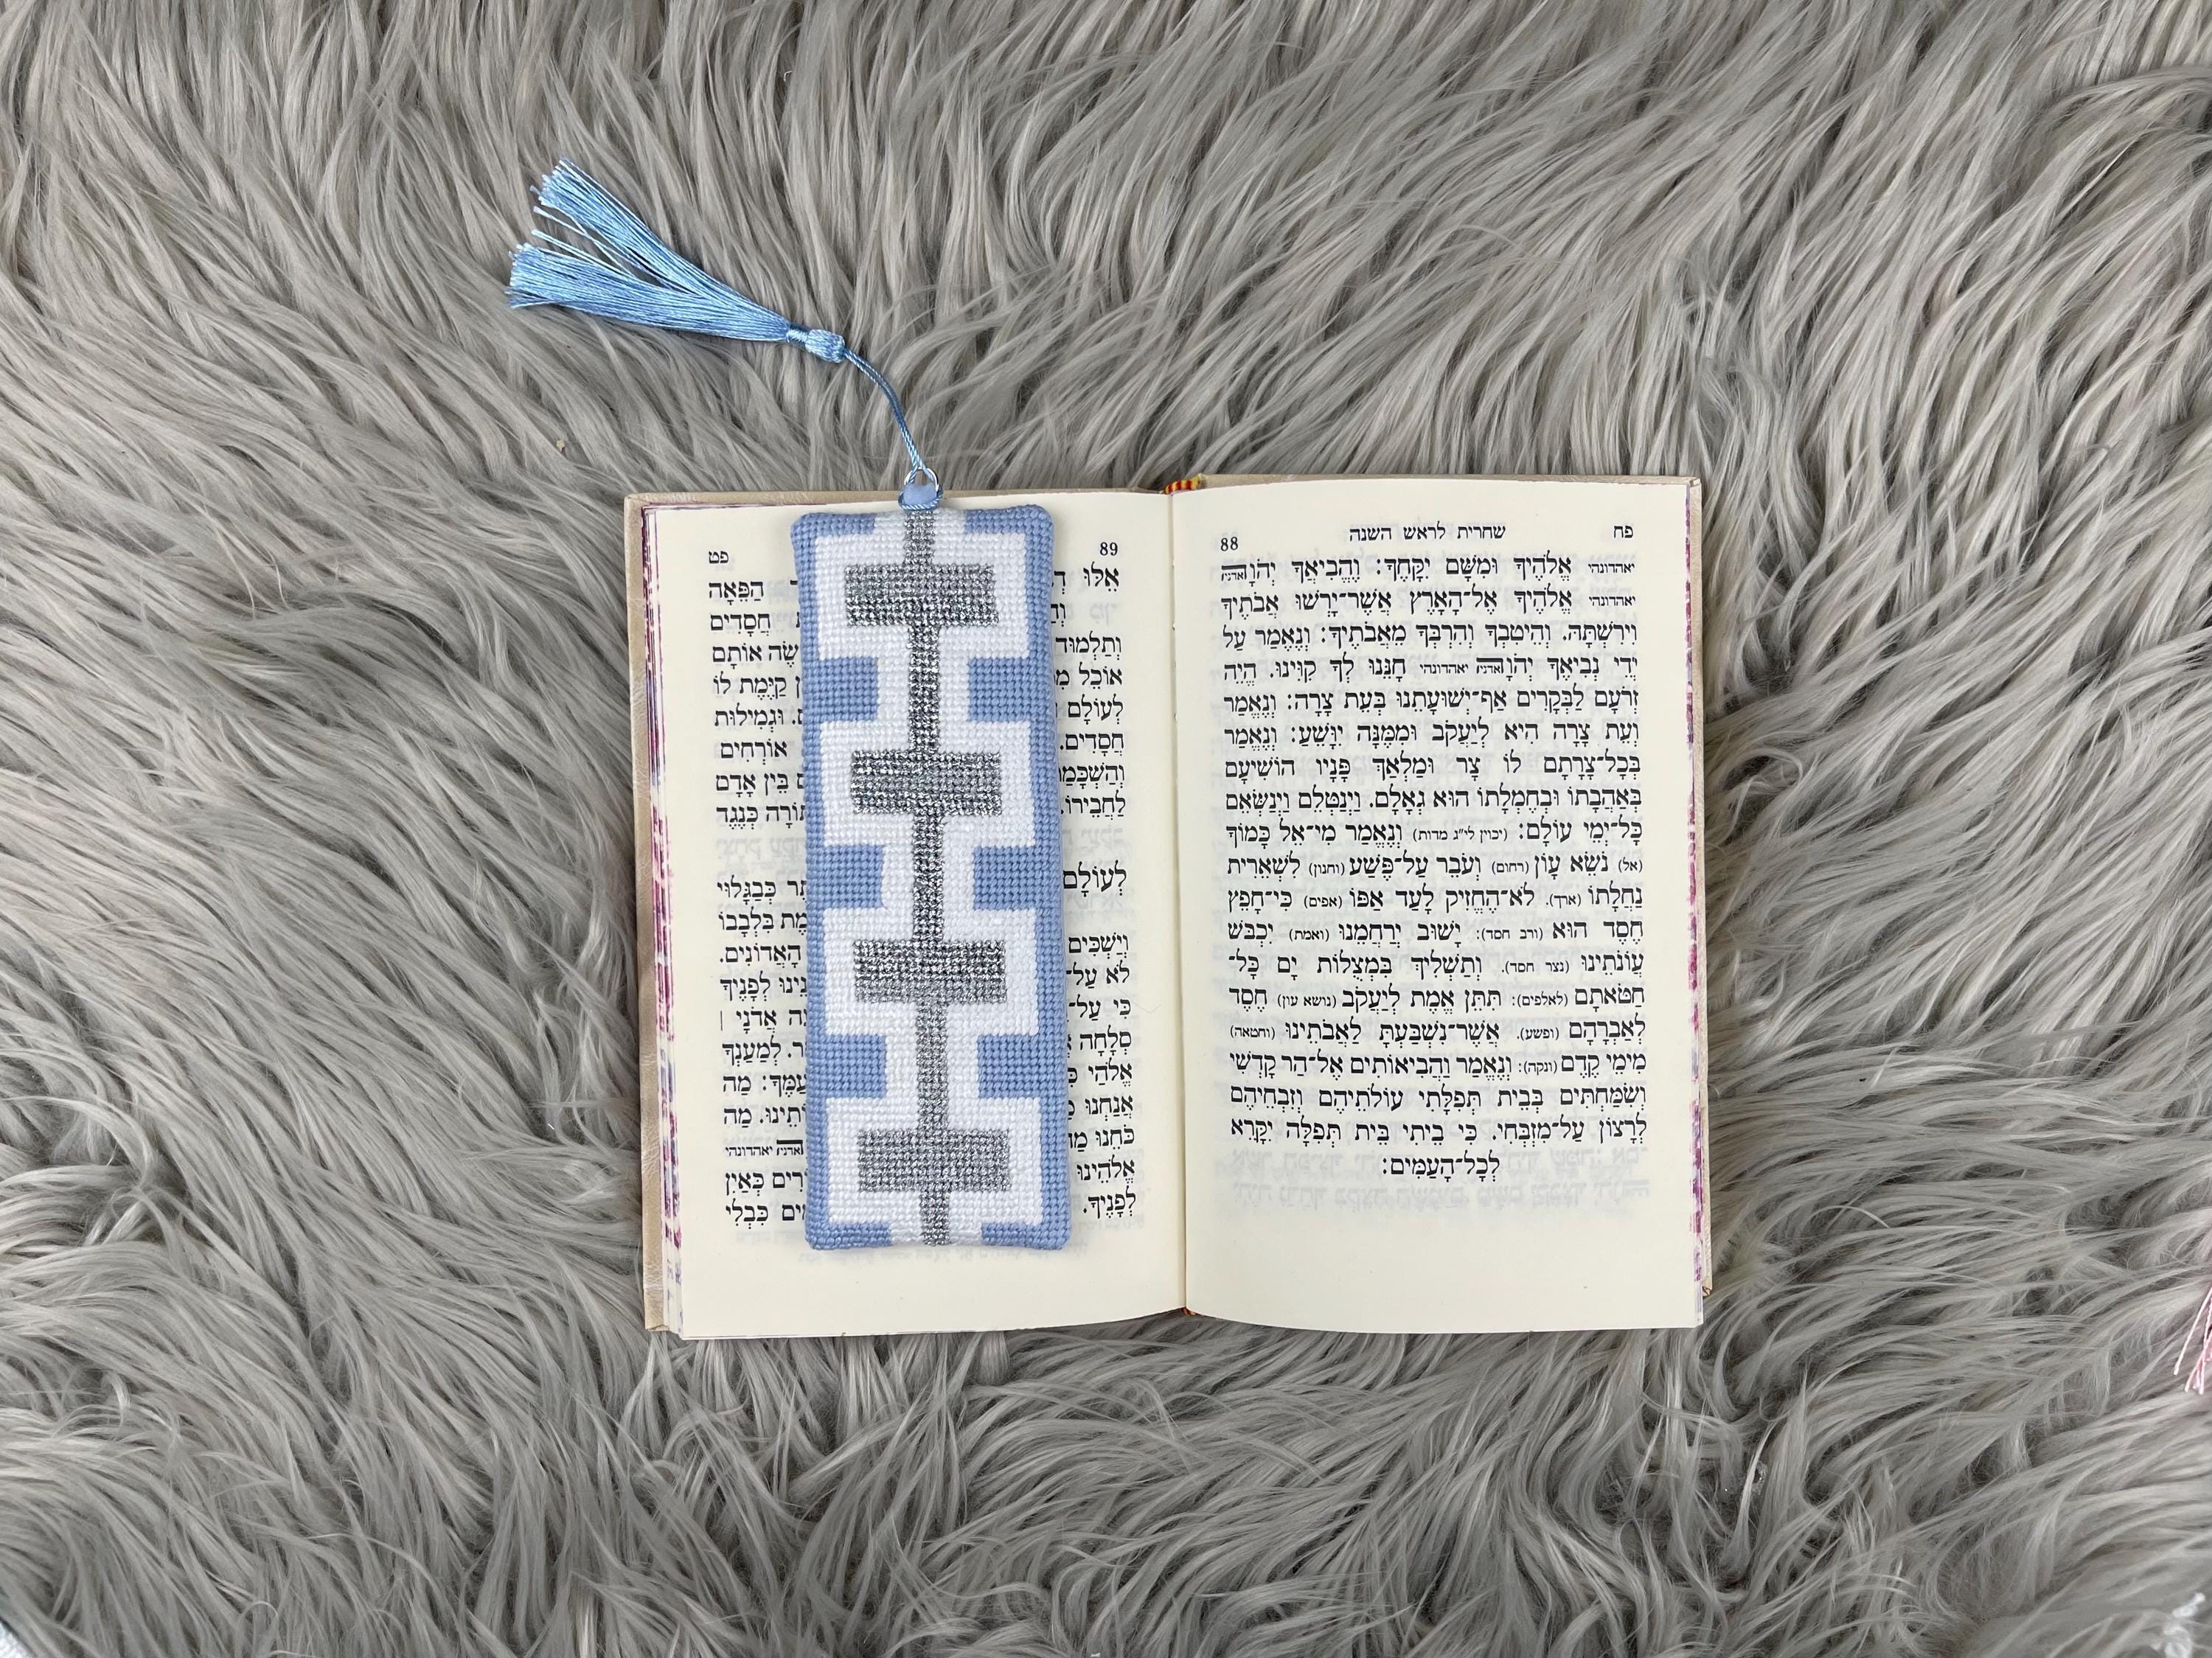 פח שחרית לראש השנה 88
יאהדונהי אֱלֹהֶיךָ וּמִשָּׁם יִקָּחֶךָ: וֶהֱבִיאֲךָ יְהֹוָה
יאהדונהי אֱלֹהֶיךָ אֶל־הָאָרֶץ אֲשֶׁר־יָרְשׁוּ אֲבֹתֶיךָ
וִירִשְׁתָּהּ. וְהֵיטִבְךָ וְהִרְבְּךָ מֵאֲבֹתֶיךָ: וְנֶאֱמַר עַל
יְדֵי נְבִיאֶךָ יְהֹוָה יאהדונהי חָנֵּנוּ לְךָ קִוִּינוּ. הֱיֵה
זְרֹעָם לַבְּקָרִים אַף־יְשׁוּעָתֵנוּ בְּעֵת צָרָה: וְנֶאֱמַר
וְעֵת צָרָה הִיא לְיַעֲקֹב וּמִמֶּנָּה יִוָּשֵׁעַ: וְנֶאֱמַר
בְּכָל־צָרָתָם לוֹ צָר וּמַלְאַךְ פָּנָיו הוֹשִׁיעָם
בְּאַהֲבָתוֹ וּבְחֶמְלָתוֹ הוּא גְאָלָם. וַיְנַטְּלֵם וַיְנַשְּׂאֵם
כָּל־יְמֵי עוֹלָם: (יכוין לי״ג מדות) וְנֶאֱמַר מִי־אֵל כָּמוֹךָ
(אל) נֹשֵׂא עָוֹן (רחום) וְעֹבֵר עַל־פֶּשַׁע (וחנון) לִשְׁאֵרִית
נַחֲלָתוֹ (ארך). לֹא־הֶחֱזִיק לָעַד אַפּוֹ (אפים) כִּי־חָפֵץ
חֶסֶד הוּא (ורב חסד): יָשׁוּב יְרַחֲמֵנוּ (ואמת) יִכְבֹּשׁ
עֲוֹנֹתֵינוּ (נצר חסד). וְתַשְׁלִיךְ בִּמְצֻלוֹת יָם כָּל־
חַטֹּאתָם (לאלפים): תִּתֵּן אֱמֶת לְיַעֲקֹב (נושא עון) חֶסֶד
לְאַבְרָהָם (ופשע). אֲשֶׁר־נִשְׁבַּעְתָּ לַאֲבֹתֵינוּ (וחטאה)
מִימֵי קֶדֶם (ונקה): וְנֶאֱמַר וַהֲבִיאוֹתִים אֶל־הַר קָדְשִׁי
וְשִׂמַּחְתִּים בְּבֵית תְּפִלָּתִי עוֹלֹתֵיהֶם וְזִבְחֵיהֶם
לְרָצוֹן עַל־מִזְבְּחִי. כִּי בֵיתִי בֵּית תְּפִלָּה יִקָּרֵא
לְכָל־הָעַמִּים:
89 פט
אֵלּוּ הַפֵּאָה
חֲסָדִים
וְתַלְמוּד אוֹתָם
אוֹכֵל קַיֶּמֶת לוֹ
לְעוֹלָם וּגְמִילוּת
חֲסָדִים. אוֹרְחִים
וְהַשְׁכָּמַת בֵּין אָדָם
לַחֲבֵירוֹ. כְּנֶגֶד
לְעוֹלָם כְּבַגָּלוּי
בִּלְבָבוֹ
וְיַשְׁכִּים הָאֲדוֹנִים.
לֹא עַל־ לְפָנֶיךָ
כִּי עַל־ אֲדֹנָי
סְלָחָה לְמַעַנְךָ
אֱלֹהַי עַמֶּךָ: מַה
אֲנַחְנוּ מַה
כֹּחֵנוּ יאהדונהי
אֱלֹהֵינוּ כְּאַיִן
לְפָנֶיךָ. כִּבְלִי